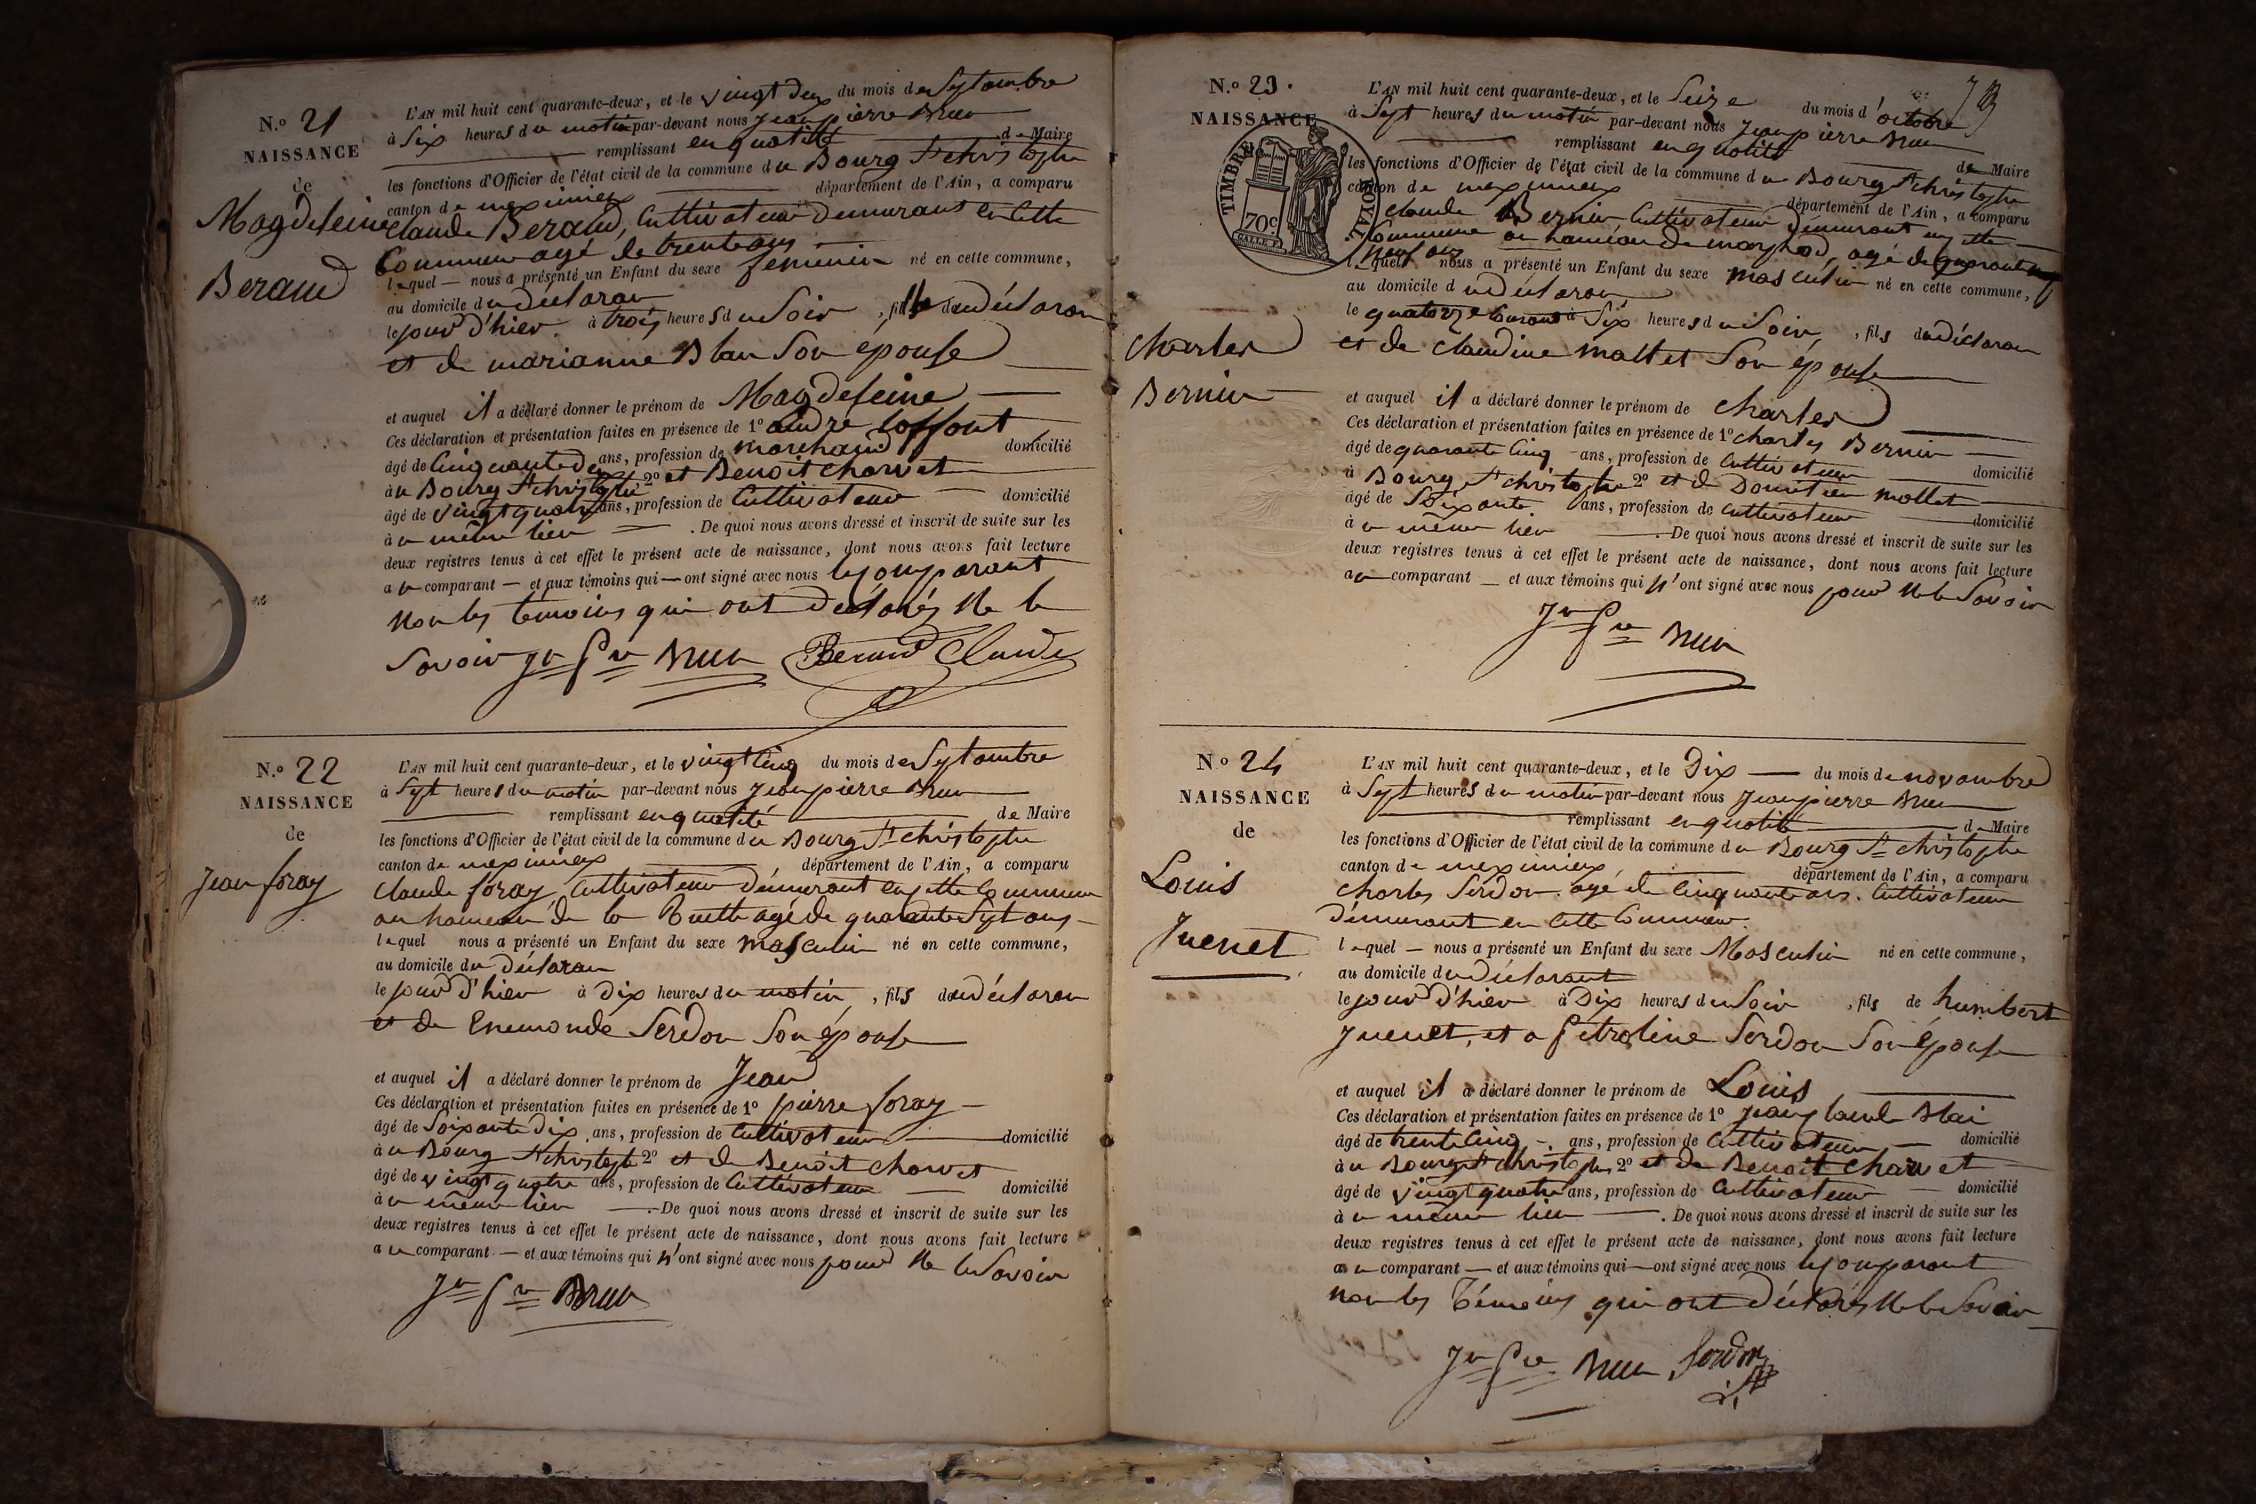 N.o 21
NAISSANCE
de
Magdeleine
Beraud
L'AN mil huit cent quarante-deux, et le vingt deux du mois de Septambre
à Six heures du matin par-devant nous jean pierre Brun
remplissant en qualité de Maire
les fonctions d'Officier de l'état civil de la commune du Bourg St christophe
canton de meximieux département de l'Ain, a comparu
Claude Beraud, Cultivateur Demurant en Cette
Commune agé de trente ans
lequel nous a présenté un Enfant du sexe feminin né en cette commune,
au domicile du déclaran
le jour d'hier à trois heures du Soir, fille du déclaran
et de marianne Blan Son épouse
et auquel il a déclaré donner le prénom de Magdeleine
Ces déclaration et présentation faites en présence de 1o andré
âgé de Cinquante ans, profession de marchand domicilié
à u Bourg St christophe 2o et Benoit charvet
âgé de vingt quatre ans, profession de Cultivateur domicilié
à u même lieu. De quoi nous avons dressé et inscrit de suite sur les
deux registres tenus à cet effet le présent acte de naissance, dont nous avons fait lecture
au comparant et aux témoins qui ont signé avec nous le Comparant
Non les témoins qui ont declarés Ne le
Savoir Jn Pre Brun Beraud Claude
N.o 22
NAISSANCE
de
Jean foray
L'AN mil huit cent quarante-deux, et le vingt Cinq du mois de Septambre
à Sept heures du matin par-devant nous jean pierre Brun
remplissant en qualité de Maire
les fonctions d'Officier de l'état civil de la commune du Bourg St christophe
canton de meximieux département de l'Ain, a comparu
Claude foray, Cultivateur Démurant en Cette Commune
au hameau de la Ruette agé de quarante Sept ans
lequel nous a présenté un Enfant du sexe masculin né en cette commune,
au domicile du déclaran
le jour d'hier à Dix heures du matin, fils du déclaran
et de Enemonde Serdon Son épouse
et auquel il a déclaré donner le prénom de Jean
Ces déclaration et présentation faites en présence de 1o pierre foray
âgé de Soixante Dix ans, profession de Cultivateur domicilié
à u Bourg St christophe 2o et de Benoit charvet
âgé de vingt quatre ans, profession de Cultivateur domicilié
à u même lieu. De quoi nous avons dressé et inscrit de suite sur les
deux registres tenus à cet effet le présent acte de naissance, dont nous avons fait lecture
au comparant et aux témoins qui n'ont signé avec nous pour Ne le Savoir
Jn Pre Brun
N.o 23.
NAISSANCE
TIMBRE ROYAL
70c
charles
Bernin
L'AN mil huit cent quarante-deux, et le Seize du mois d'octobre
à Sept heures du matin par-devant nous jean pierre Brun
remplissant en qualité de Maire
les fonctions d'Officier de l'état civil de la commune du Bourg St christophe
canton de meximieux département de l'Ain, a comparu
claude Bernin Cultivateur Démurant en Cette
Commune au hameau de agé de quarante
neuf ans
lequel nous a présenté un Enfant du sexe masculin né en cette commune,
au domicile du déclaran
le quatorze Courant à Six heures du Soir, fils du déclaran
et de claudine mallet Son épouse
et auquel il a déclaré donner le prénom de charles
Ces déclaration et présentation faites en présence de 1o charles Bernin
âgé de quarante Cinq ans, profession de Cultivateur domicilié
à Bourg St christophe 2o et de mollet
âgé de Soixante ans, profession de Cultivateur domicilié
à u même lieu. De quoi nous avons dressé et inscrit de suite sur les
deux registres tenus à cet effet le présent acte de naissance, dont nous avons fait lecture
au comparant et aux témoins qui n'ont signé avec nous pour Ne le Savoir
Jn Pre Brun
No 24
NAISSANCE
de
Louis
Juenet
L'AN mil huit cent quarante-deux, et le Dix du mois de novambre
à Sept heures du matin par-devant nous Jean pierre Brun
remplissant en qualité de Maire
les fonctions d'Officier de l'état civil de la commune du Bourg St christophe
canton de meximieux département de l'Ain, a comparu
Charles Serdon agé de Cinquante ans. Cultivateur
Démurant en Cette Commune
lequel nous a présenté un Enfant du sexe Masculin né en cette commune,
au domicile du déclarant
le jour d'hier à Dix heures du Soir, fils de humbert
Juenet, et a Pétroline Serdon Son épouse
et auquel il a déclaré donner le prénom de Louis
Ces déclaration et présentation faites en présence de 1o Jean Claude
âgé de trente Cinq ans, profession de Cultivateur domicilié
à u Bourg St christophe 2o et de Benoit charvet
âgé de vingt quatre ans, profession de Cultivateur domicilié
à u même lieu. De quoi nous avons dressé et inscrit de suite sur les
deux registres tenus à cet effet le présent acte de naissance, dont nous avons fait lecture
au comparant et aux témoins qui ont signé avec nous le Comparant
non les Témoins qui ont déclarés Ne le Savoir
Jn Pre Brun Serdon